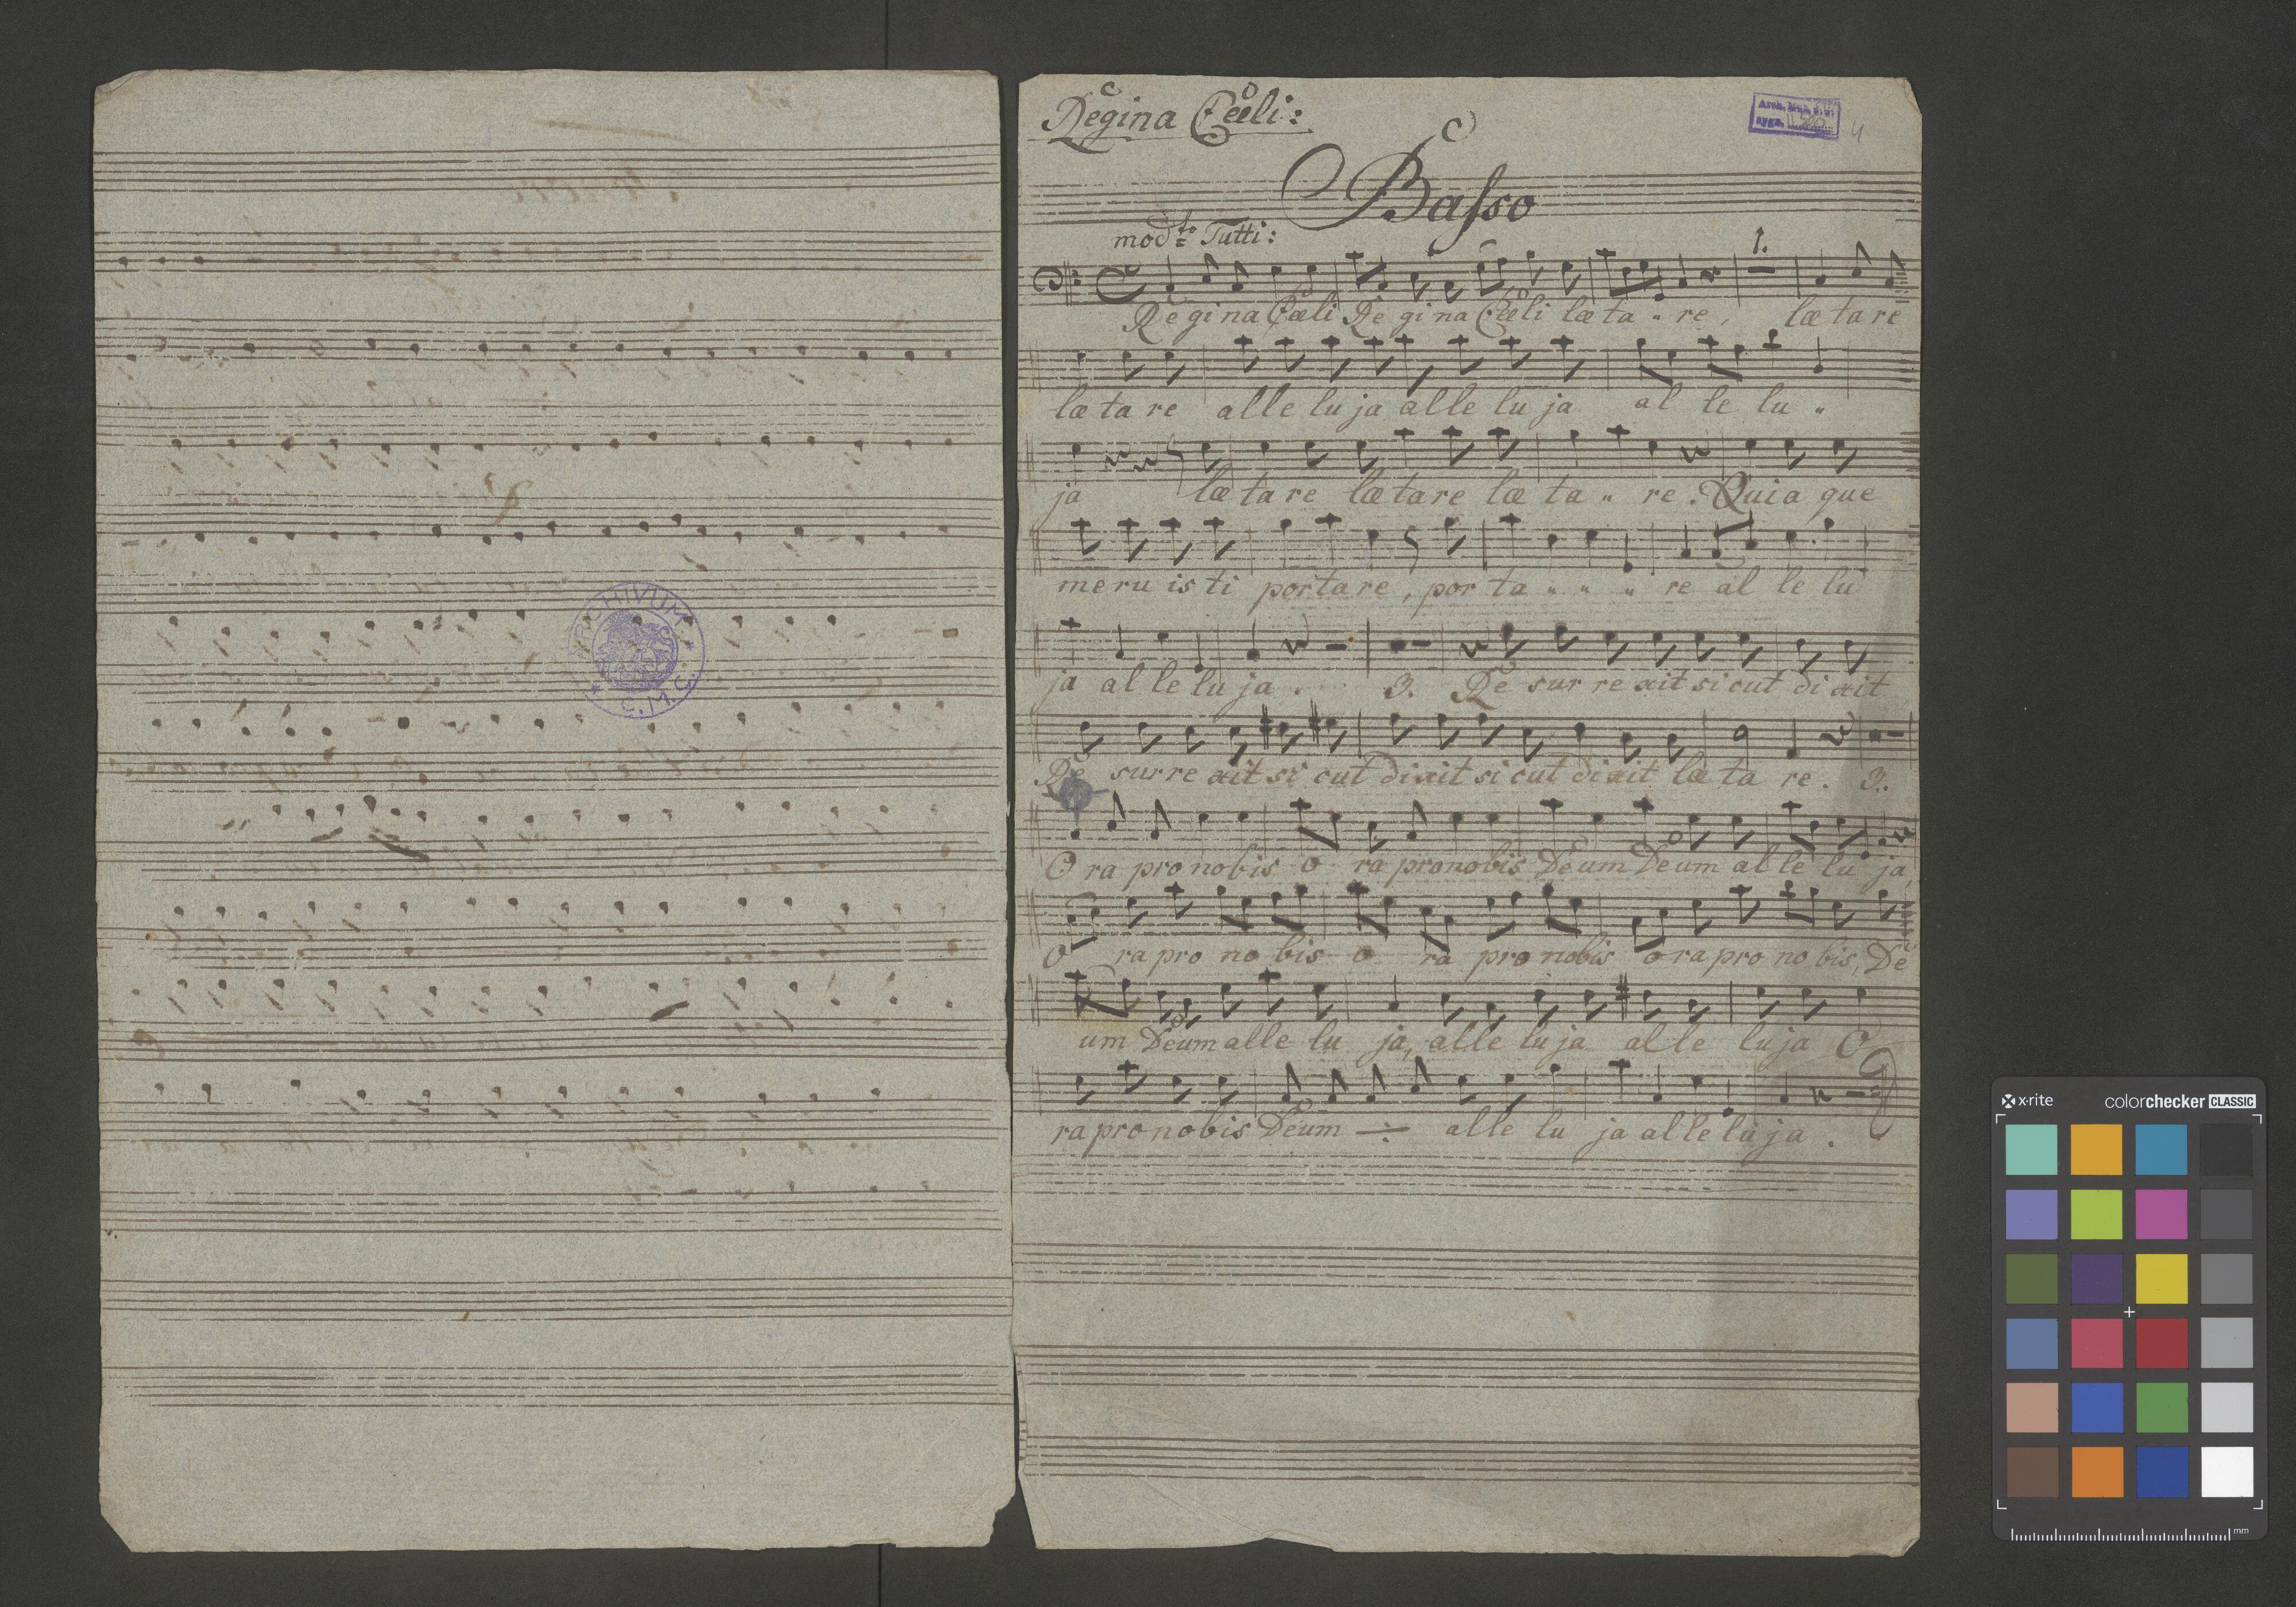 ARCHIVUM
C.M.S.
Regina Cœli:
4
Basso
modto Tutti:
1.
Re gi na Cœli Re gi na Cœli læ ta " re, læ ta re
læ ta re alle lu ja alle lu ja al le lu "
ja læ ta re læ ta re læ ta " re. Quia que
me ru is ti por ta re, por ta " " " re al le lu
ja al le lu ja. 3. Re sur re xit si cut di xit
Re sur re xit si cut dixit si cut dixit læ ta re. 3.
O ra pro nobis o ra pro nobis Deum Deum al le lu ja,
O ra pro no bis o ra pro nobis o ra pro no bis, De
um Deum alle lu ja, alle lu ja al le lu ja O
ra pro no bis Deum ÷ alle lu ja al le lu ja.
x-rite
colorchecker CLASSIC
mm